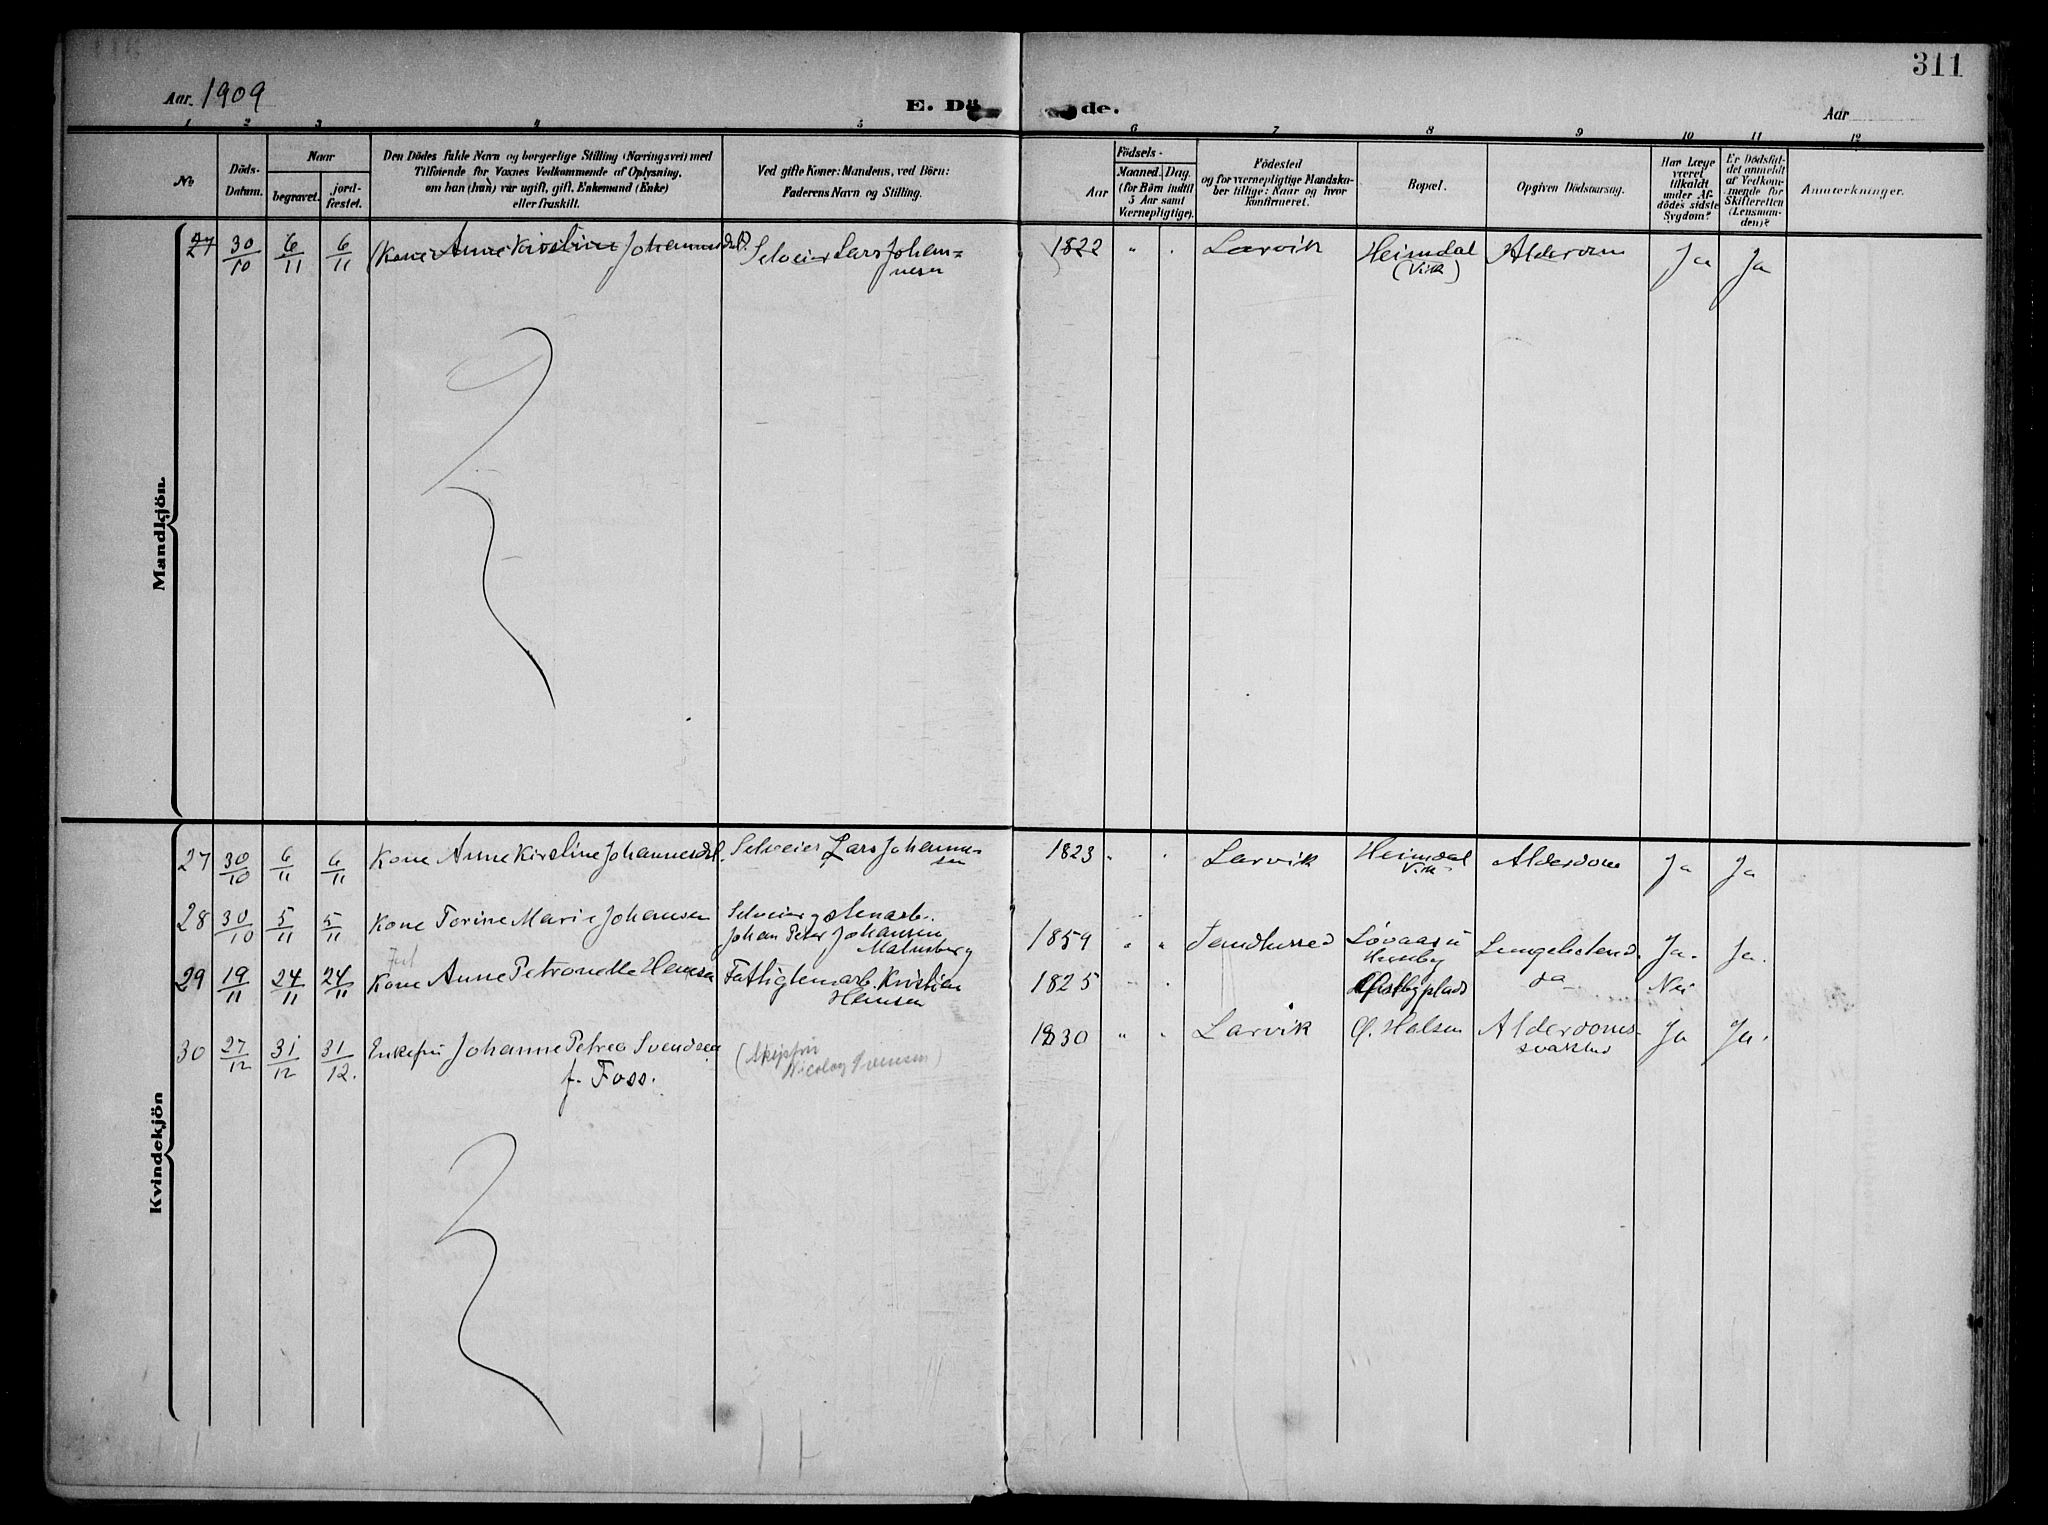 311
Aar. 1909
E. Dö de.
Aar
1 2 3 4 5 6 7 8 9 10 11 12
No
Döds-Datum.
Naar
begravet.
jord-fæstet.
Den Dödes fulde Navn og borgerlige Stilling (Næringsvei) med
Tilföiende for Voxnes Vedkommende af Oplysning,
om han (hun) var ugift, gift, Enkemand (Enke)
eller fraskilt.
Ved gifte Koner: Mandens, ved Börn:
Faderens Navn og Stilling.
Födsels-
Aar
Maaned. Dag.
(for Börn indtil
5 Aar samt
Værnepligtige).
Födested
og for værnepligtige Mandska-
ber tillige: Naar og hvor
konfirmeret.
Bopæl.
Opgiven Dödsaarsag.
Har Læge
været
tilkaldt
under Af-
dödes sidste
Sygdom?
Er Dödsfal-
det anmeldt
af Vedkom-
mende for
Skifteretten
(Lensman-
den)?
Anmærkninger.
Mandkjön.
27 30/10 6/11 6/11 (Kone Anne Kirstine Johannesdtr). Selveier Lars Johan-
nesen
1822 " . Larvik Heimdal Alderdom Ja Ja
(Vik)
Kvindekjön
27 30/10 6/11 6/11 Kone Anne Kirstine Johannesdt. Selveier Lars Johanne-
sen
1823 " . Larvik Heimdal Alderdom Ja Ja
Vik
28 30/10 5/11 5/11 Kone Torine Marie Johansen Selveier og stenarb.
Johan Peter Johansen
Malmberg
1859 " " Løvaas u Ja. Ja.
29 19/11 24/11 24/11 Kone Anne Petronelle Hansen Fattiglem arb. Kristian
Hansen
1825 " . Østbyplads da Nei
30 27/12 31/12 31/12. Enkefru Johanne Petrea Svendsen
f. Foss.
(Skipsfrü
Nicolay Svensen)
1830 " " Larvik Ø. Halsen Alderdoms- Ja Ja.
svakhed